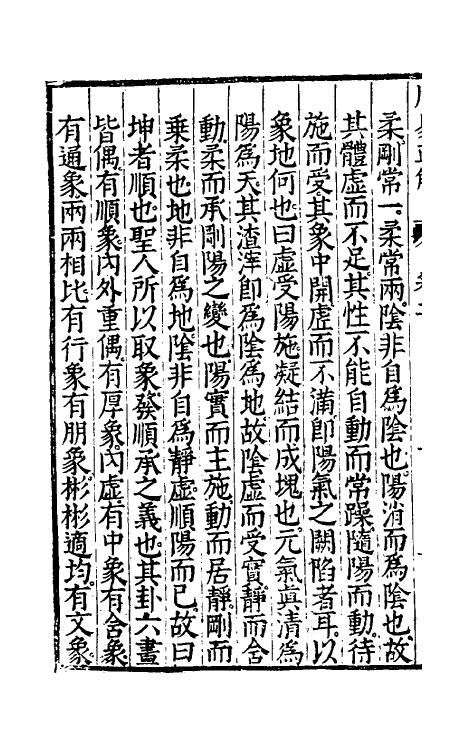 柔剛常一。柔常兩。陰非自爲陰也。陽消而爲陰也。故
其體虛而不足。其性不能自動而常躁。隨陽而動。待
施而受。其象中開虛而不滿。卽陽氣之闕陷者耳。以
象地何也。曰虛受陽施凝結而成塊也。元氣眞清爲
陽爲天。其渣滓卽爲陰爲地。故陰虛而受實。靜而含
動。柔而承剛。陽之變也。陽實而主施。動而居靜。剛而
乗柔也。地非自爲地。陰非自爲靜。虛順陽而已。故曰
坤者順也。聖人所以取象。發順承之義也。其卦六畫
皆偶。有順象。內外重偶。有厚象。內虛。有中象。有含象。
有通象。兩兩相比。有行象。有朋象。彬彬適均。有文象。